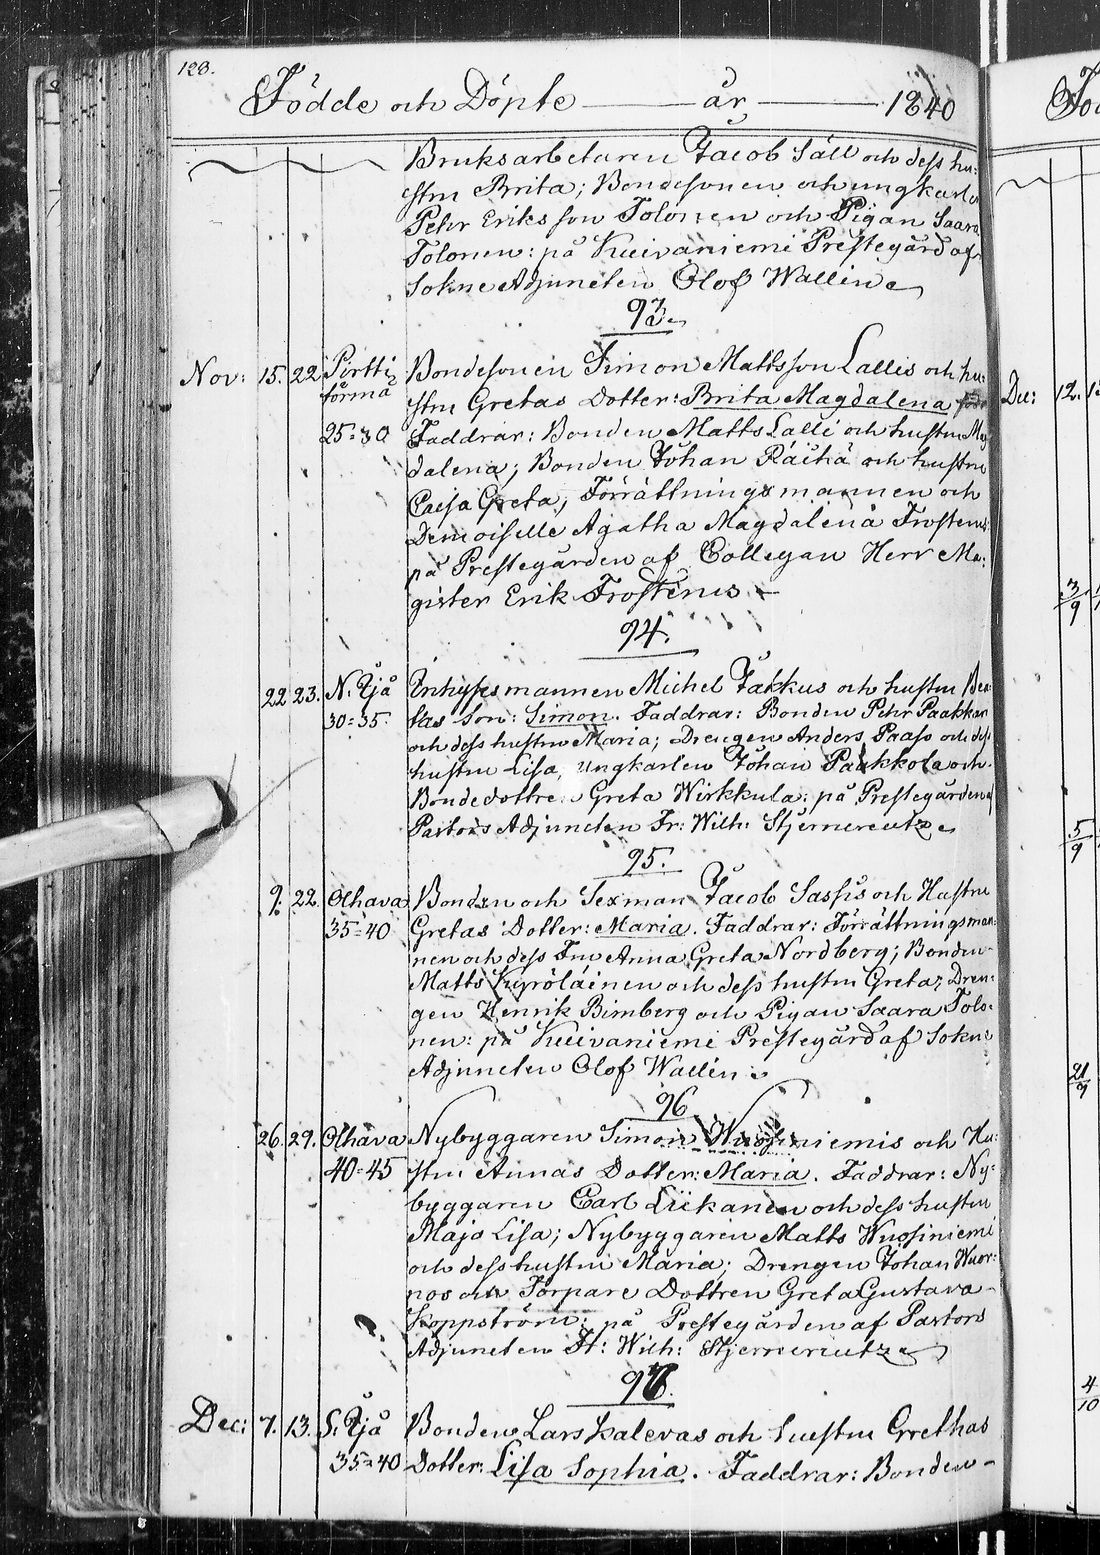 128.
Födde och Döpte år 1840
Bruksarbetaren Jacob Säll och dess hu-
stru Brita; Bondesonen och ungkarlen
Pehr Eriksson Tolonen och Pigan Saara
Tolonen: på Kuivaniemi Prestegård af
Sokne Adjuncten Olof Wallin
93.
Nov: 15. 22 Pirtti Bondesonen Simon Mattsson Lallis och hu-
törmä stru Gretas Dotter: Brita Magdalena
25=30 Faddrar: Bonden Matts Lalli och hustru Mag
dalena; Bonden Johan Räihä och hustru
Caisa Greta; Förrättningsmannen och
Demoiselle Agatha Magdalena Frosterus:
på Prestegården af Collegan Herr Ma-
gister Erik Frosterus
94.
22 23. N. Ijå Inhysesmannen Michel Jakkus och hustru
30=35. tas Son: Simon. Faddrar: Bonden Pehr Paakkar
och dess hustru Maria; Drengen Anders Paaso och dess
hustru Lisa, ungkarlen Johan Paakkola och
Bondedottren Greta Wirkkula: på Prestegården af
Pastors Adjuncten Fr: Wilh: Stjerncreutz
95.
9. 22. Olhava Bonden och Sexman Jacob Sassis och Hustru
35=40 Gretas Dotter: Maria. Faddrar: Förrättningsman-
nen och dess Fru Anna Greta Nordberg; Bonden
Matts Kyröläinen och dess hustru Greta; Dren-
gen Henrik Bimberg och Pigan Saara Tolo-
nen: på Kuivaniemi Prestegård af Sokne
Adjuncten Olof Wallin
96
26. 29. Olhava Nybyggaren Simon Wuosiniemis och Hu-
40=45 stru Annas Dotter: Maria. Faddrar: Ny-
byggaren Carl Liikanen och dess hustru
Maja Lisa; Nybyggaren Matts Wuosiniemi
och dess hustru Maria; Drengen Johan Wuor-
nos och Torpare Dottren Greta Gustava
Koppström: på Prestegården af Pastors
Adjuncten Fr: Wilh: Stjerncreutz
97.
Dec: 7. 13. S. Ijå Bonden Lars Kalevas och hustru Grethas
35=40 Dotter: Lisa Sophia. Faddrar: Bonden
Dec: 12.
3/9
5/9
21/9
4/10